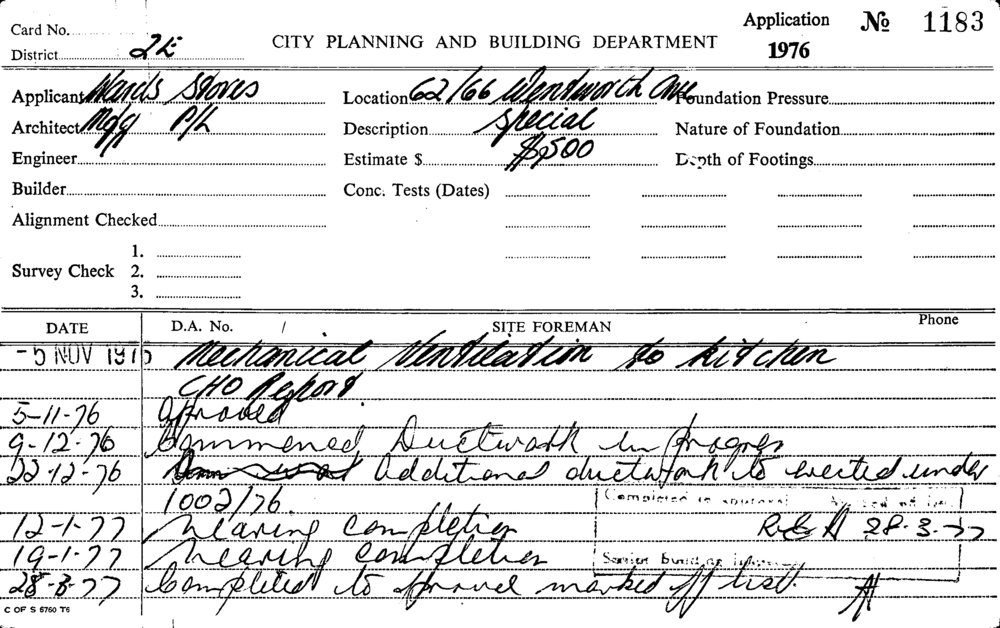 Card No.
Application No 1183
District 2E
CITY PLANNING AND BUILDING DEPARTMENT
1976
Applicant Wards Stores
Location 62/66 Wentworth Ave
Foundation Pressure
Architect P/L
Description Special
Nature of Foundation
Engineer
Estimate $
Depth of Footings
Builder
Conc. Tests (Dates)
Alignment Checked
1.
Survey Check 2.
3.
DATE
D.A. No. /
SITE FOREMAN
Phone
-5 NOV 1976 Mechanical Ventilation to kitchen
CHO Report.
5-11-76 Approved
9-12-76 Commenced Ductwork in progress
22-12-76 additional ductwork to erected under
1002/76.
Completed to approval
12-1-77 nearing completion
28-3-77
19-1-77 nearing completion
Senior building
28-3-77 Completed to approval marked off list.
C OF S 6760 T6